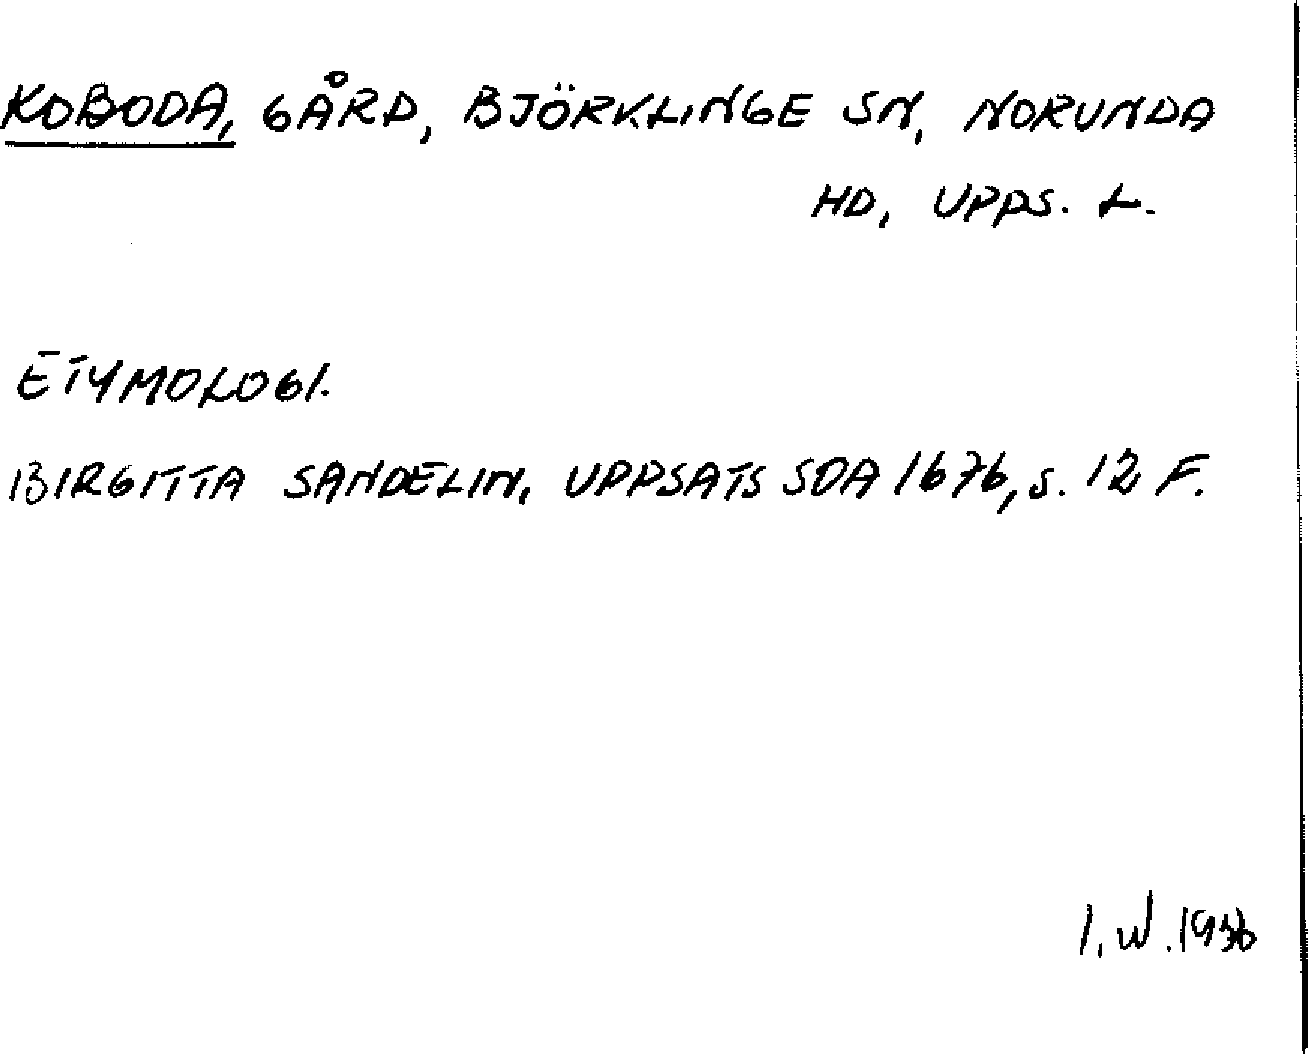 KOBODA, GÅRD, BJÖRKLINGE SN, NORUNDA
HD, UPPS. L.
ETYMOLOGI.
BIRGITTA SANDELIN, UPPSATS SOA 1676, s. 12 F.
I. W.